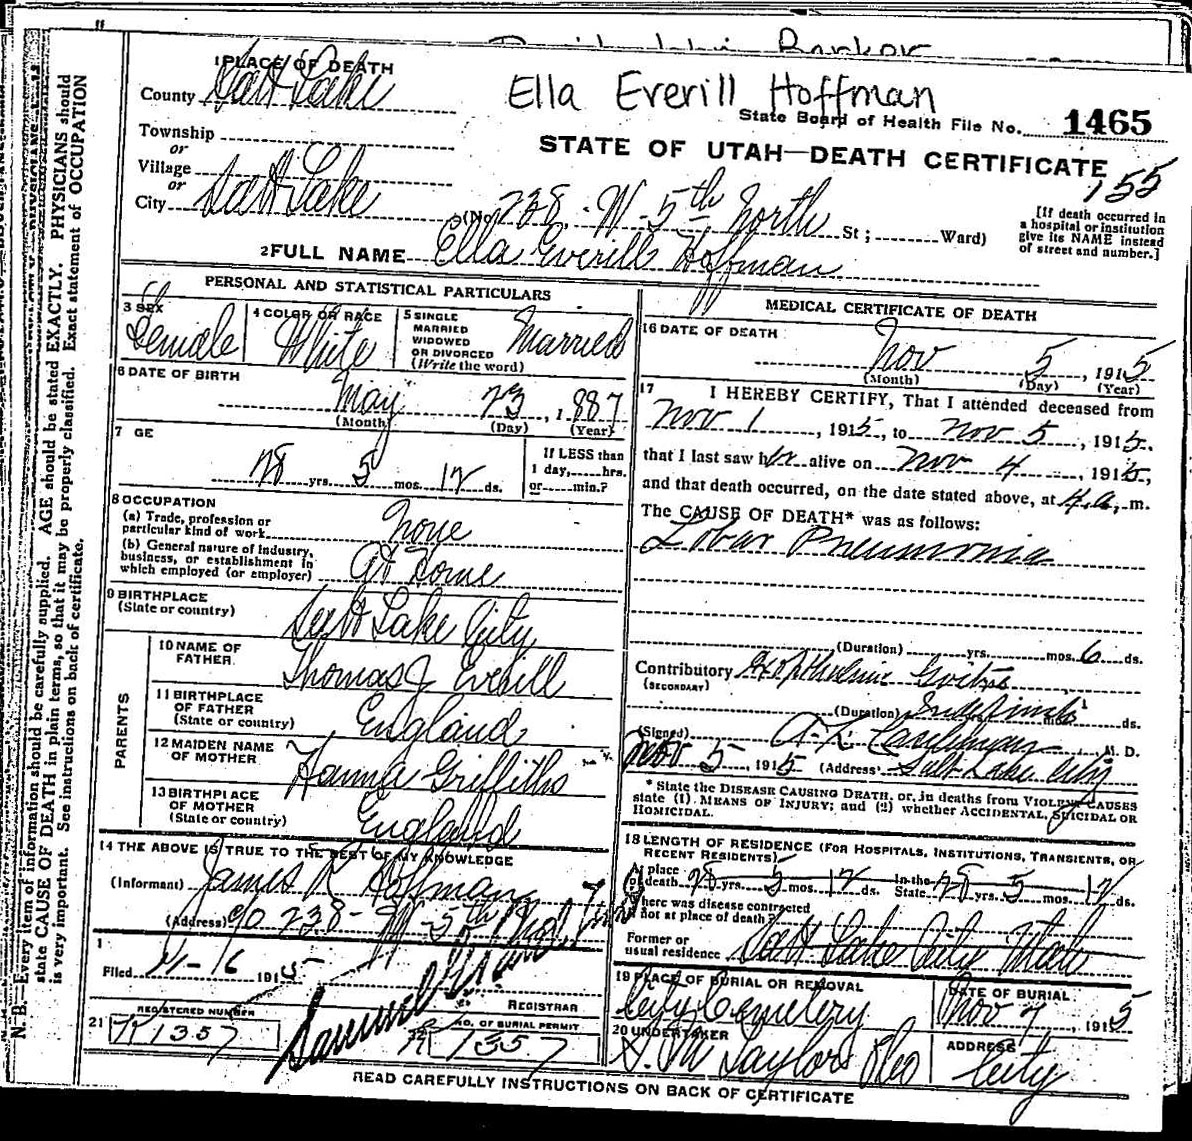 N. B.—Every item of information should be carefully supplied. AGE should be stated EXACTLY. PHYSICIANS should
state CAUSE OF DEATH in plain terms, so that it may be properly classified. Exact statement of OCCUPATION
is very important. See instructions on back of certificate.
1 PLACE OF DEATH
County Salt Lake
Township
or
Village
or
City Salt Lake
Ella Everill Hoffman
State Board of Health File No. 1465
STATE OF UTAH—DEATH CERTIFICATE
155
(No. 238 W. 5th North St; Ward)
[If death occurred in
a hospital or institution
give its NAME instead
of street and number.]
2 FULL NAME Ella Everill Hoffman
PERSONAL AND STATISTICAL PARTICULARS
3 SEX Female
4 COLOR OR RACE White
5 SINGLE
MARRIED
WIDOWED
OR DIVORCED
(Write the word)
Married
6 DATE OF BIRTH
May 23, 1887
(Month) (Day) (Year)
7 GE
28 yrs. 5 mos. 12 ds.
If LESS than
1 day, hrs.
or min.?
8 OCCUPATION
(a) Trade, profession or
particular kind of work None
(b) General nature of industry,
business, or establishment in
which employed (or employer) At Home
9 BIRTHPLACE
(State or country) Salt Lake City
PARENTS
10 NAME OF
FATHER Thomas J Everill
11 BIRTHPLACE
OF FATHER
(State or country) England
12 MAIDEN NAME
OF MOTHER Hanna Griffiths
13 BIRTHPLACE
OF MOTHER
(State or country) England
14 THE ABOVE IS TRUE TO THE BEST OF MY KNOWLEDGE
(Informant) James R Hoffman
(Address) c/o 238- W-5th
1
Filed 11-16 1915
REGISTRAR
21
REGISTERED NUMBER
R1357
NO. OF BURIAL PERMIT
R 1357
MEDICAL CERTIFICATE OF DEATH
16 DATE OF DEATH
Nov 5, 1915
(Month) (Day) (Year)
17 I HEREBY CERTIFY, That I attended deceased from
Nov 1, 1915, to Nov 5, 1915,
that I last saw her alive on Nov 4, 1915,
and that death occurred, on the date stated above, at 4 a. m.
The CAUSE OF DEATH* was as follows:
Lobar Pneumonia
(Duration) yrs. mos. 6 ds.
Contributory Goitre
(SECONDARY)
(Duration) Indefinite ds.
(Signed) M. D.
Nov 5, 1915 (Address) Salt Lake City
* State the DISEASE CAUSING DEATH, or, in deaths from VIOLENT CAUSES
state (1) MEANS OF INJURY; and (2) whether ACCIDENTAL, SUICIDAL OR
HOMICIDAL.
18 LENGTH OF RESIDENCE (FOR HOSPITALS, INSTITUTIONS, TRANSIENTS, OR
RECENT RESIDENTS)
At place
of death 28 yrs. 5 mos. 12 ds. In the State 28 yrs. 5 mos. 12 ds.
Where was disease contracted
if not at place of death?
Former or
usual residence Salt Lake City Utah
19 PLACE OF BURIAL OR REMOVAL
City Cemetery
DATE OF BURIAL
Nov 7, 1915
20 UNDERTAKER
S. M Taylor &Co
ADDRESS
City
READ CAREFULLY INSTRUCTIONS ON BACK OF CERTIFICATE